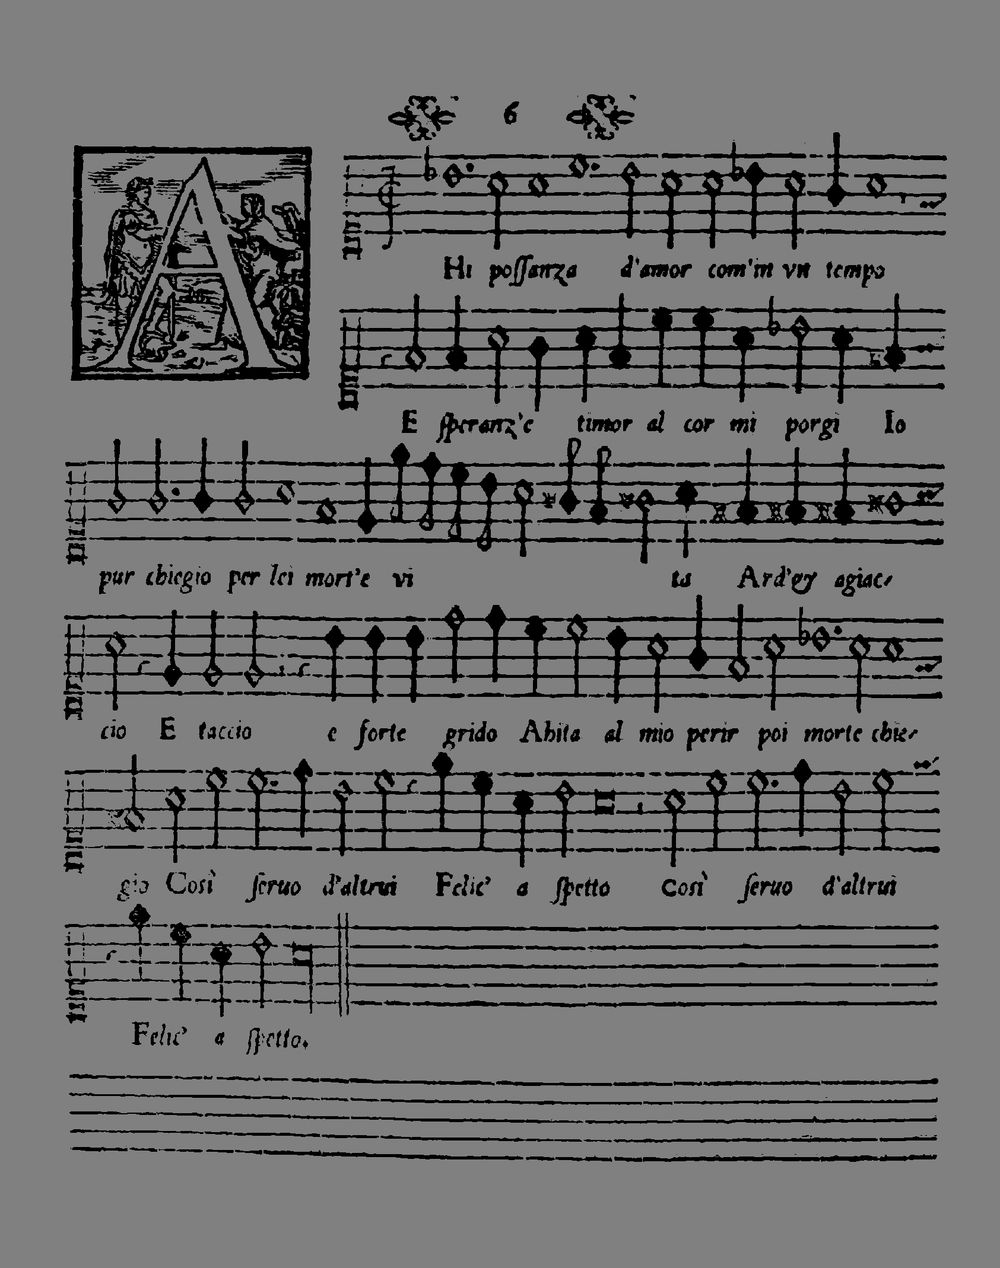 6
AHi possanza d'amor com'in vn tempo
E speranz'e timor al cor mi porgi Io
pur chiegio per lei mort'e vi ta Ard'& agiac-
cio E taccio e forte grido Ahita al mio perir poi morte chie-
gio Così seruo d'altrui Felic' a spetto Così seruo d'altrui
Felic' a spetto.